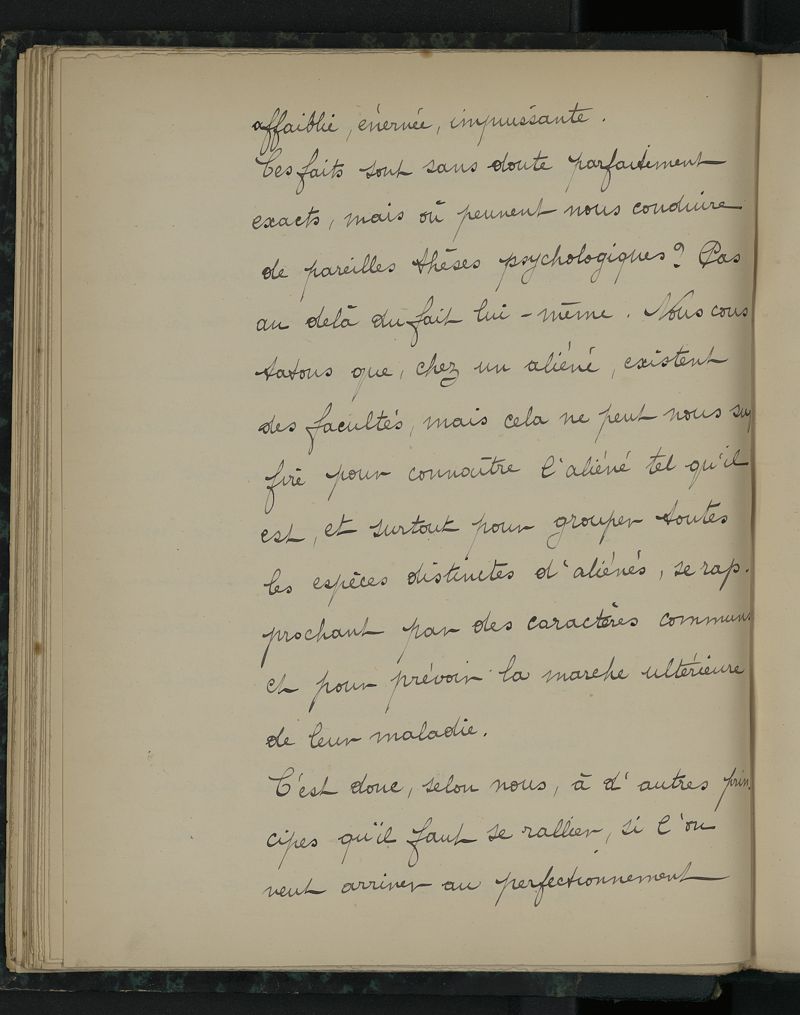 affaiblie, énervée, impuissante.
Ces faits sont sans doute parfaitement
exacts, mais où peuvent nous conduire
de pareilles thèses psychologiques? Pas
au delà du fait lui-même. Nous cons
tatons que, chez un aliéné, existent
des facultés, mais cela ne peut nous suf
fire pour connaître l'aliéné tel qu'il
est, et surtout pour grouper toutes
les espèces distinctes d'aliénés, se rap-
prochant par des caractères communs
et pour prévoir la marche ultérieure
de leur maladie.
C'est donc, selon nous, à d'autres prin-
cipes qu'il faut se rallier, si l'on
veut arriver au perfectionnement